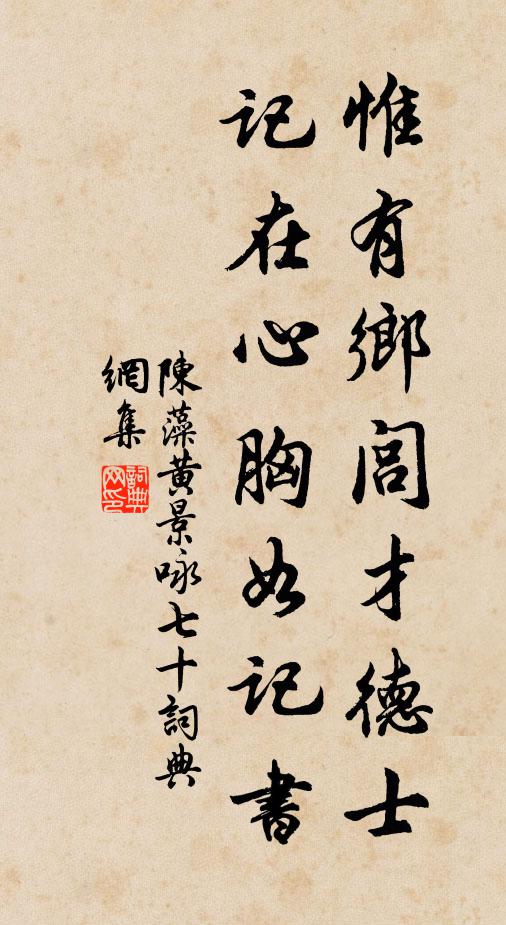 惟有鄉閭才德士
記在心胸如記書
陳藻黃景咏七十詞典
網集
詞典
网印